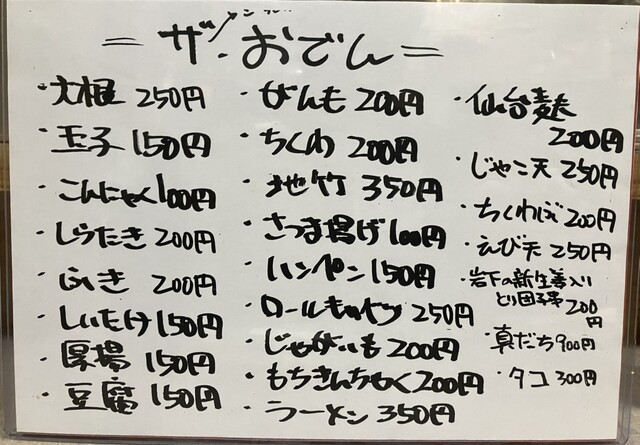 = ザ・おでん =
・大根 250円
・玉子 150円
・こんにゃく 100円
・しらたき 200円
・ふき 200円
・しいたけ 150円
・厚揚 150円
・豆腐 150円
・がんも 200円
・ちくわ 200円
・地竹 350円
・さつま揚げ 100円
・ハンペン 150円
・ロールキャベツ 250円
・じゃがいも 200円
・もちきんちゃく 200円
・ラーメン 350円
・仙台麩
200円
・じゃこ天 250円
・ちくわぶ 200円
・えび天 250円
・岩下の新生姜入り
とり団子串 200円
・真だち 900円
・タコ 300円